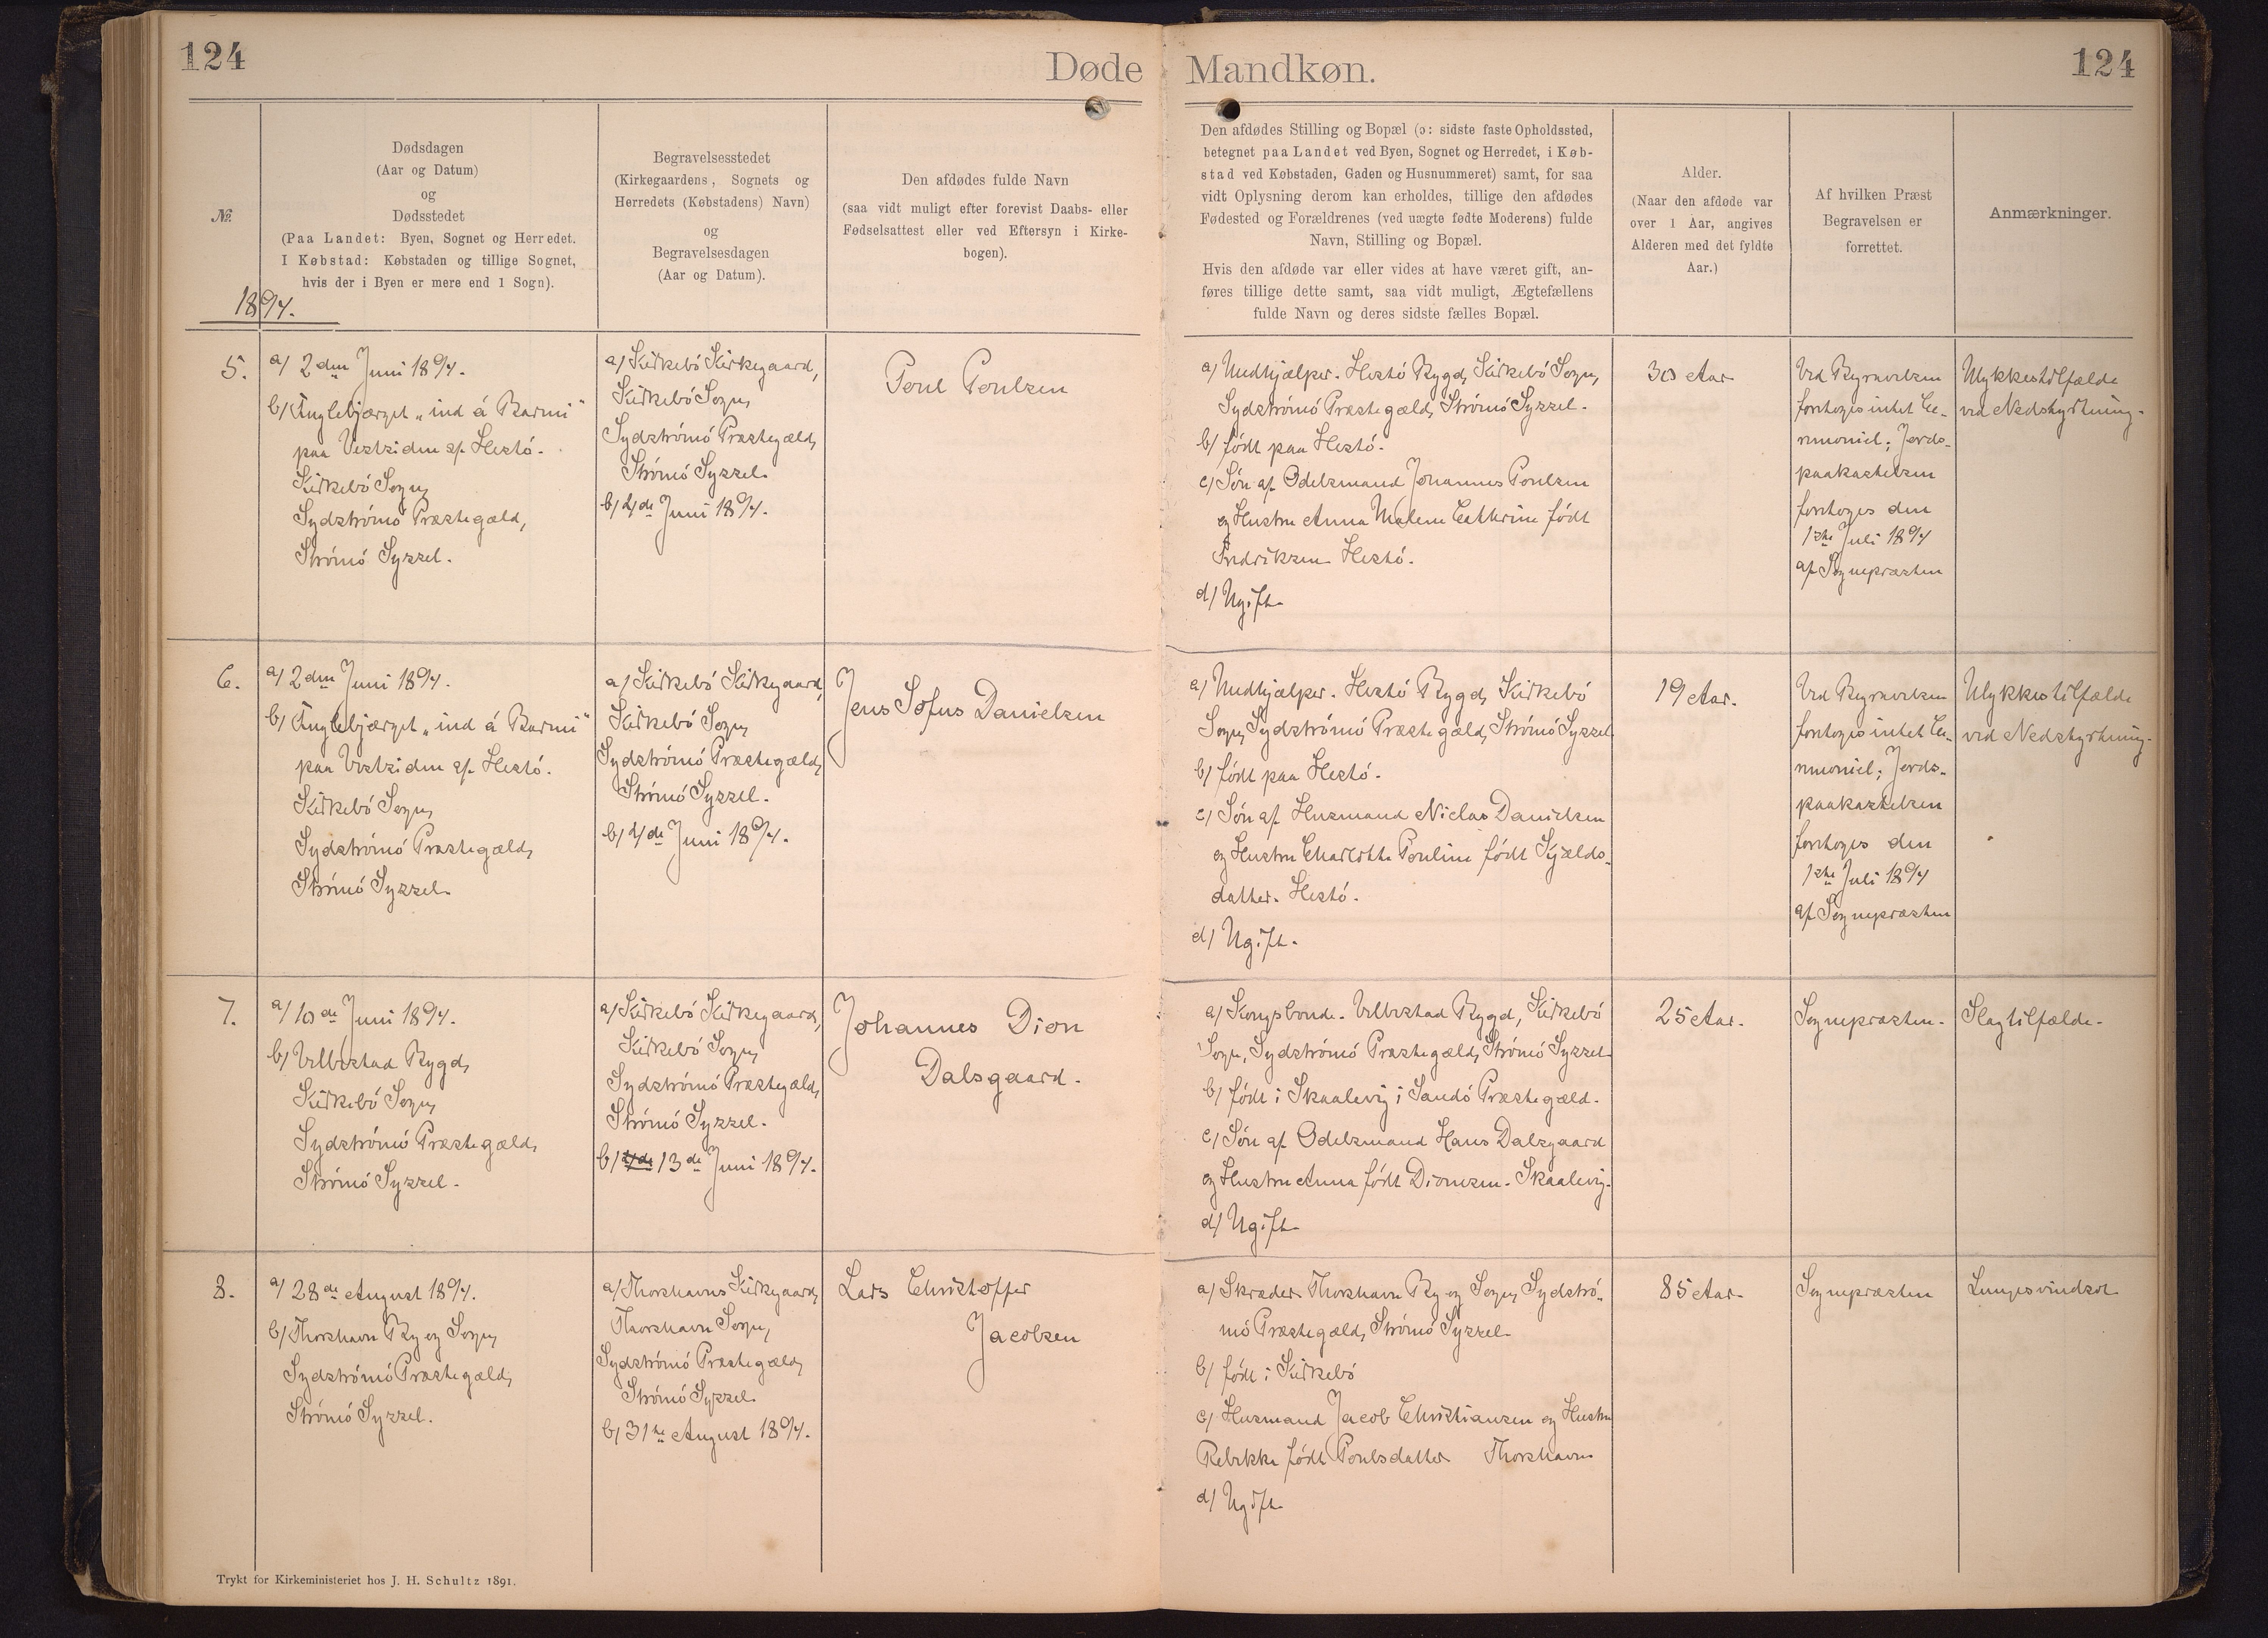 124
Døde Mandkøn.
124
№
Dødsdagen
(Aar og Datum)
og
Dødsstedet
(Paa Landet: Byen, Sognet og Herredet.
I Købstad: Købstaden og tillige Sognet,
hvis der i Byen er mere end 1 Sogn).
Begravelsesstedet
(Kirkegaardens, Sognets og
Herredets (Købstadens) Navn)
og
Begravelsesdagen
(Aar og Datum).
Den afdødes fulde Navn
(saa vidt muligt efter forevist Daabs- eller
Fødselsattest eller ved Eftersyn i Kirke-
bogen).
Den afdødes Stilling og Bopæl (ɔ: sidste faste Opholdssted,
betegnet paa Landet ved Byen, Sognet og Herredet, i Køb-
stad ved Købstaden, Gaden og Husnummeret) samt, for saa
vidt Oplysning derom kan erholdes, tillige den afdødes
Fødested og Forældrenes (ved uægte fødte Moderens) fulde
Navn, Stilling og Bopæl.
Hvis den afdøde var eller vides at have været gift, an-
føres tillige dette samt, saa vidt muligt, Ægtefællens
fulde Navn og deres sidste fælles Bopæl.
Alder.
(Naar den afdøde var
over 1 Aar, angives
Alderen med det fyldte
Aar.)
Af hvilken Præst
Begravelsen er
forrettet.
Anmærkninger.
1894.
5.
a/ 2den Juni 1894.
b/ Fuglebjærget „ind á Barmi"
paa Vestsiden af Hestó.
Kirkebó Sogn,
Sydstrómó Præstegæld,
Strómó Syssel.
a/ Kirkebó Kirkegaard,
Kirkebó Sogn,
Sydstrómó Præstegæld,
Strómó Syssel.
b/ 4de Juni 1894.
Poul Poulsen
a/ Medhjælper. Hestó Bygd, Kirkebó Sogn,
Sydstrómó Præstegæld, Strómó Syssel.
b/ født paa Hestó.
c/ Søn af Odelsmand Johannes Poulsen
og Hustru Anna Malene Cathrine født
Fredriksen. Hestó.
d/ Ugift.
30 Aar
Ved Begravelsen
foretoges intet Ce-
remoniel; Jords-
paakastelsen
foretoges den
1ste Juli 1894
af Sognepræsten
Ulykkestilfælde
ved Nedstyrtning.
6.
a/ 2den Juni 1894.
b/ Fuglebjærget „ind á Barmi"
paa Vestsiden af Hestó.
Kirkebó Sogn,
Sydstrómó Præstegæld,
Strómó Syssel.
a/ Kirkebó Kirkegaard,
Kirkebó Sogn,
Sydstrómó Præstegæld,
Strómó Syssel.
b/ 4de Juni 1894.
Jens Sofus Danielsen
a/ Medhjælper. Hestó Bygd, Kirkebó
Sogn, Sydstrómó Præstegæld, Strómó Syssel
b/ født paa Hestó.
c/ Søn af Husmand Niclas Danielsen
og Hustru Charlotte Pouline født Kjælds-
datter. Hestó.
d/ Ugift.
19 Aar.
Ved Begravelsen
foretoges intet Ce-
remoniel; Jords-
paakastelsen
foretoges den
1ste Juli 1894
af Sognepræsten
Ulykkestilfælde
ved Nedstyrtning.
7.
a/ 10de Juni 1894.
b/ Velbestad Bygd,
Kirkebó Sogn,
Sydstrómó Præstegæld,
Strómó Syssel.
a/ Kirkebó Kirkegaard,
Kirkebó Sogn,
Sydstrómó Præstegæld,
Strómó Syssel.
b/ 4de 13de Juni 1894.
Johannes Dion
Dalsgaard.
a/ Kongsbonde. Velbestad Bygd, Kirkebó
Sogn, Sydstrómó Præstegæld, Strómó Syssel
b/ født i Skaalevig i Sandó Præstegæld.
c/ Søn af Odelsmand Hans Dalsgaard
og Hustru Anna født Dionesen. Skaalevig.
d/ Ugift.
25 Aar.
Sognepræsten.
Slagtilfælde.
8.
a/ 28de August 1894.
b/ Thorshavn By og Sogn,
Sydstrómó Præstegæld,
Strómó Syssel.
a/ Thorshavns Kirkegaard,
Thorshavn Sogn,
Sydstrómó Præstegæld,
Strómó Syssel.
b/ 31te August 1894.
Lars Christoffer
Jacobsen
a/ Skræder. Thorshavn By og Sogn, Sydstró-
mó Præstegæld, Strómó Syssel.
b/ født i Kirkebó
c/ Husmand Jacob Christiansen og Hustru
Rebekka født Poulsdatter Thorshavn.
d/ Ugift.
85 Aar
Sognepræsten
Lungesvindsot
Trykt for Kirkeministeriet hos J. H. Schultz 1891.